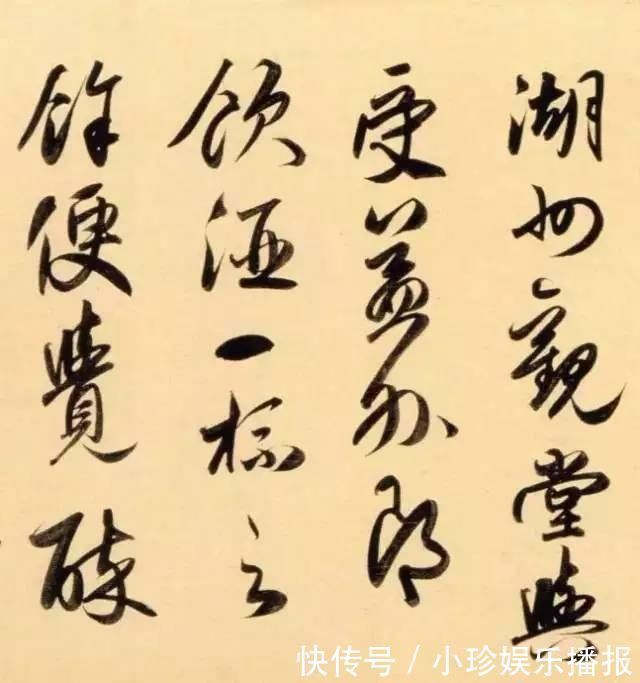 湖州觀堂與
受益外郎
飲酒一杯之
餘便覺醉
快传号 / 小珍娱乐播报